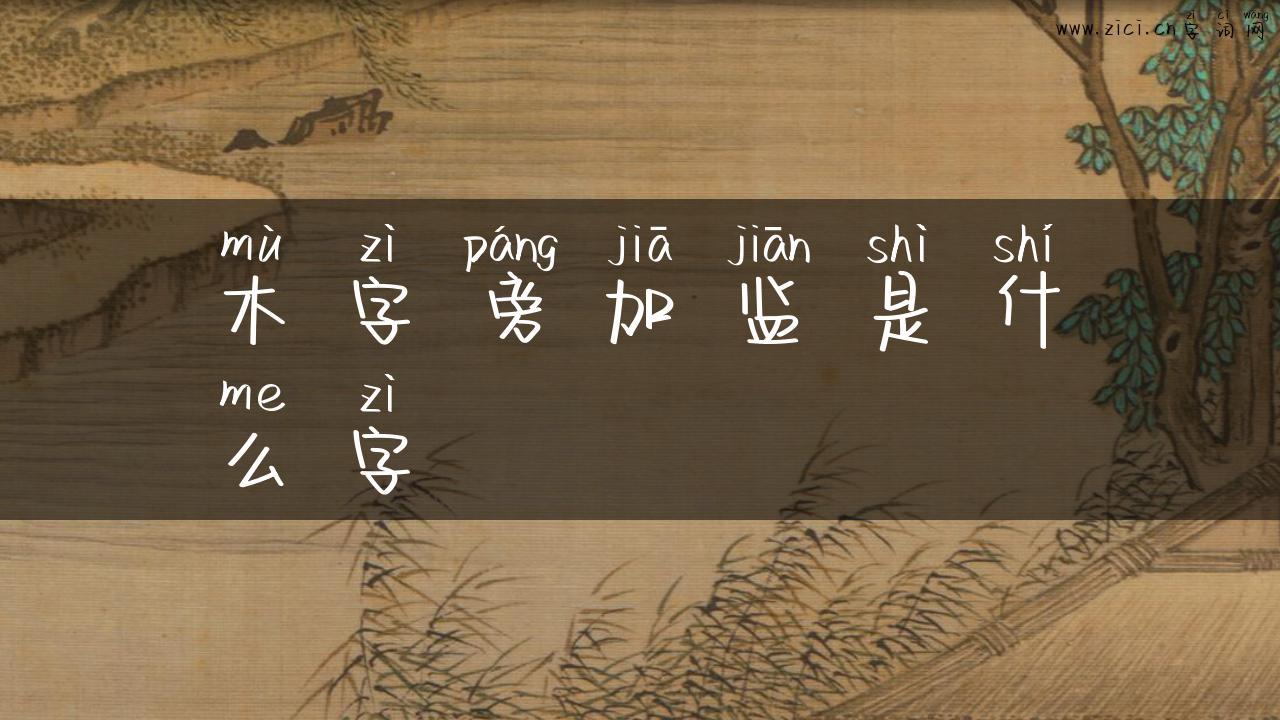 zì cí wǎng
www.zici.cn字词网
mù zì páng jiā jiān shì shí
木字旁加监是什
me zì
么字